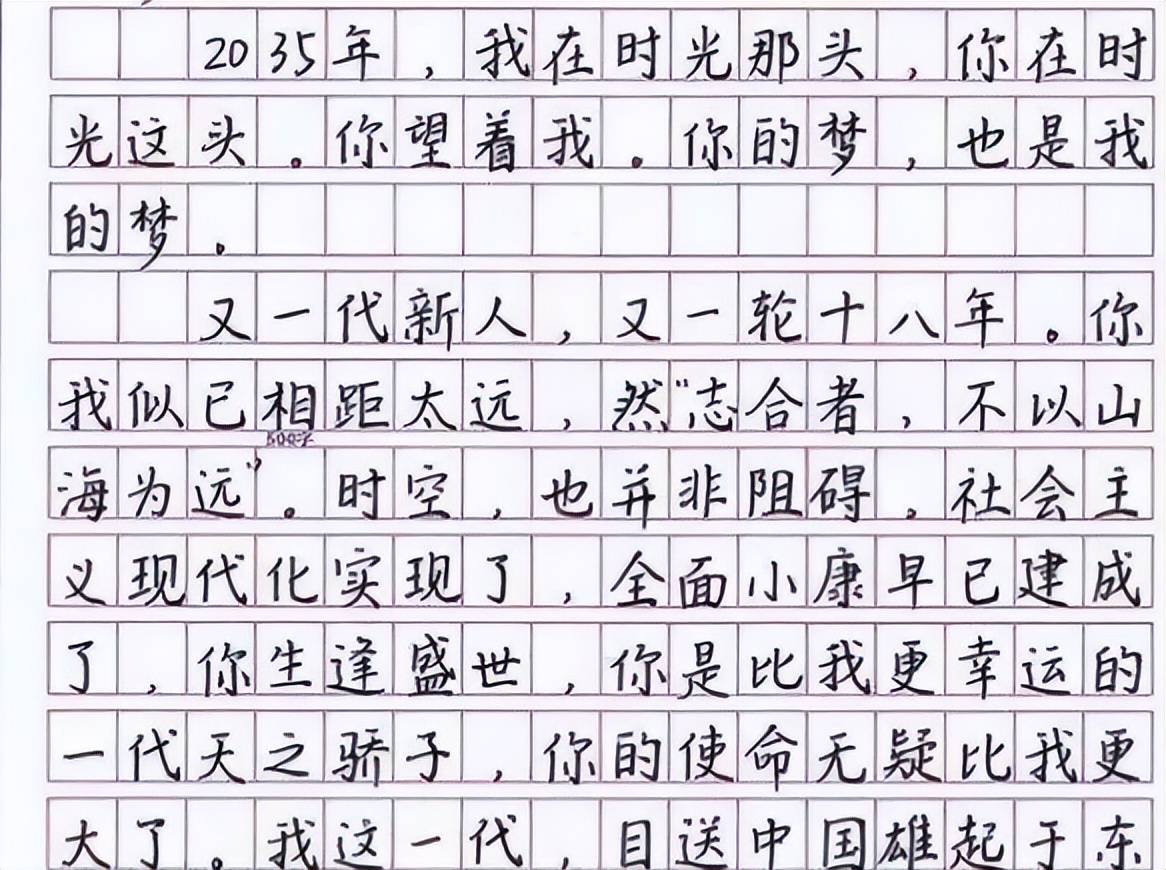 2035年，我在时光那头，你在时
光这头。你望着我。你的梦，也是我
的梦。
又一代新人，又一轮十八年。你
我似已相距太远，然“志合者，不以山
海为远”。时空，也并非阻碍。社会主
义现代化实现了，全面小康早已建成
了，你生逢盛世，你是比我更幸运的
一代天之骄子，你的使命无疑比我更
大了。我这一代，目送中国雄起于东